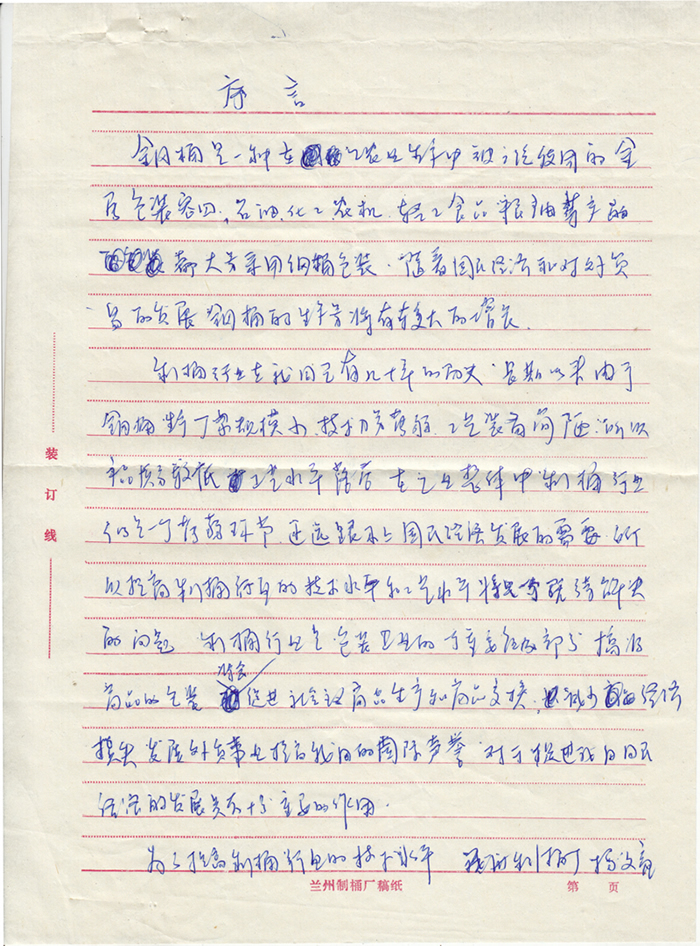 序言
钢桶是一种在工农业生产中被广泛使用的金
属包装容四,石油、化工、农机、轻工食品粮油等产品
都大量采用钢桶包装.随着国民经济和对外贸
易的发展钢桶的生产量将有较大的增长.
制桶行业在我国已有几十年的历史.长期以来由于
钢桶生产厂家规模小、技术力量薄弱.工艺装备简陋.所以
工艺水平落后在工业整体中制桶行业
仍是一个薄弱环节.还远跟不上国民经济发展的需要.所
以提高制桶行业的技术水平和工艺水平将是亟待解决
的问题.制桶行业是包装工业的一个重要组成部分搞好
商品的包装促进社会主义商品生产和商品交换,减少经济
损失发展外贸事业提高我国的国际声誉对于促进我国国民
经济的发展具有十分重要的作用.
为了提高制桶行业的技术水平
装订线
兰州制桶厂稿纸
第 页